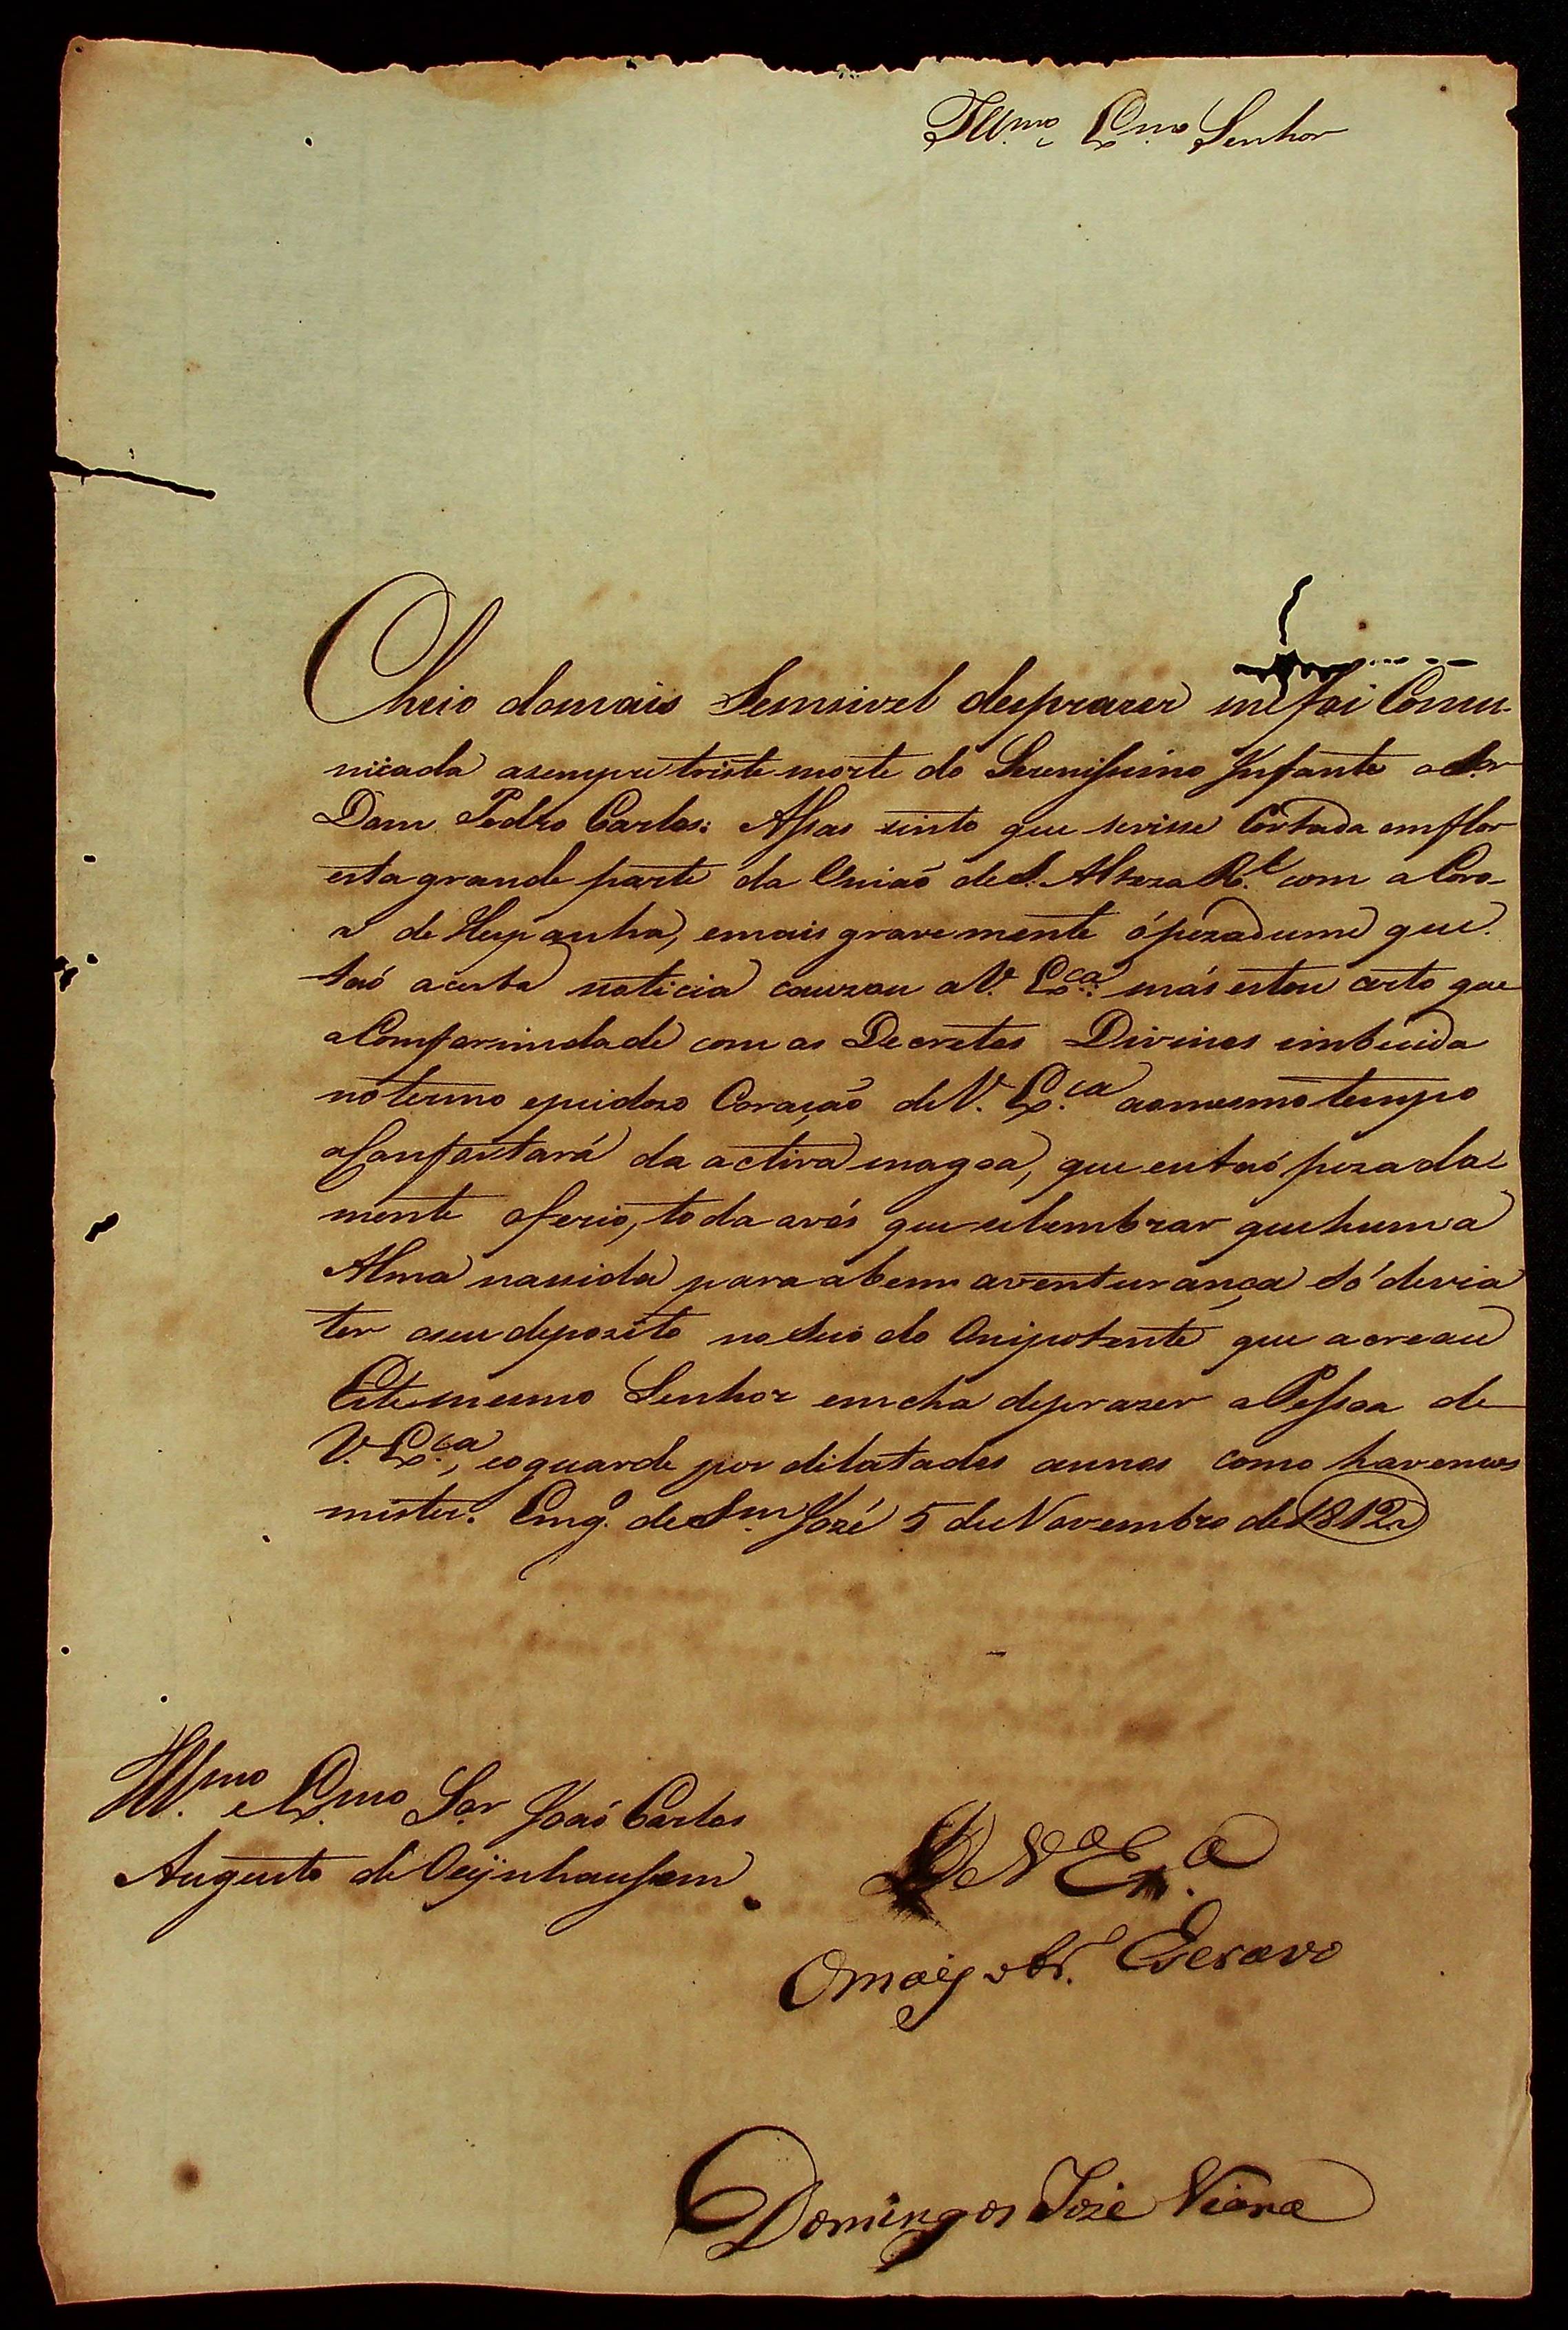 Ill.mo Ex.mo Senhor
Cheio domais Sensivel desprazer me foi Comu-
nicada asempre triste morte do Serenissimo Infante o Sr.
Dom Pedro Carlos: Assas sinto que sevisse Cortada emflor
esta grande parte da Uniaõ de S. Alteza R.l com a Coro-
a de Hespanha, emais gravemente ópezadume que
taó acerba noticia cauzou aV. Ex.ca: más estou certo que
aComformidade com os Decretos Divinos embuida
noterno epiedozo Coração deV. Ex.ca aomesmo tempo
oConfortará da activa magoa, que entaó pezada-
mente oferio, toda avés que selembrar que huma
Alma nascida para abemaventurança só devia
ter oseu depozito no Seio do Onipotente que acreou
Este mesmo Senhor emcha deprazer aPessoa de
V. Ex.ca, eoguarde por dilatados annos como havemos
mister. Eng.o de Sm. Jozé 5 de Novembro de 1812
Ill.mo e Ex.mo Sor. Joaó Carlos
Augusto de Oeÿnhausem
De V.a Ex.a
Omais obr. Escravo
Domingos Joze Viana